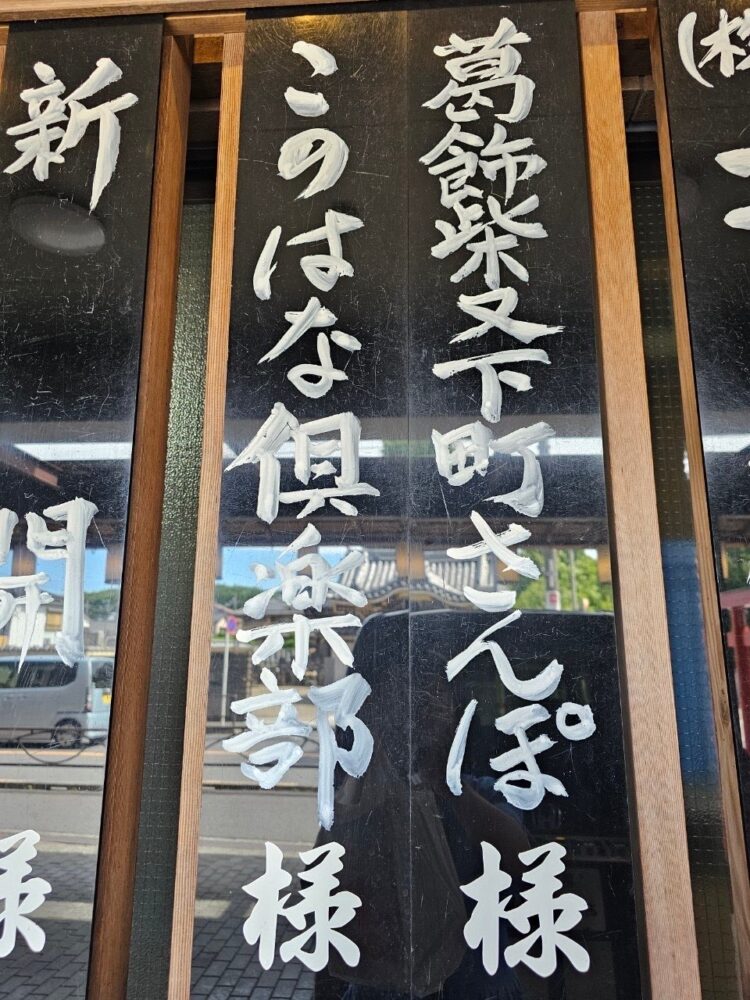 (株
葛飾柴又下町さんぽ様
このはな倶楽部様
新
様